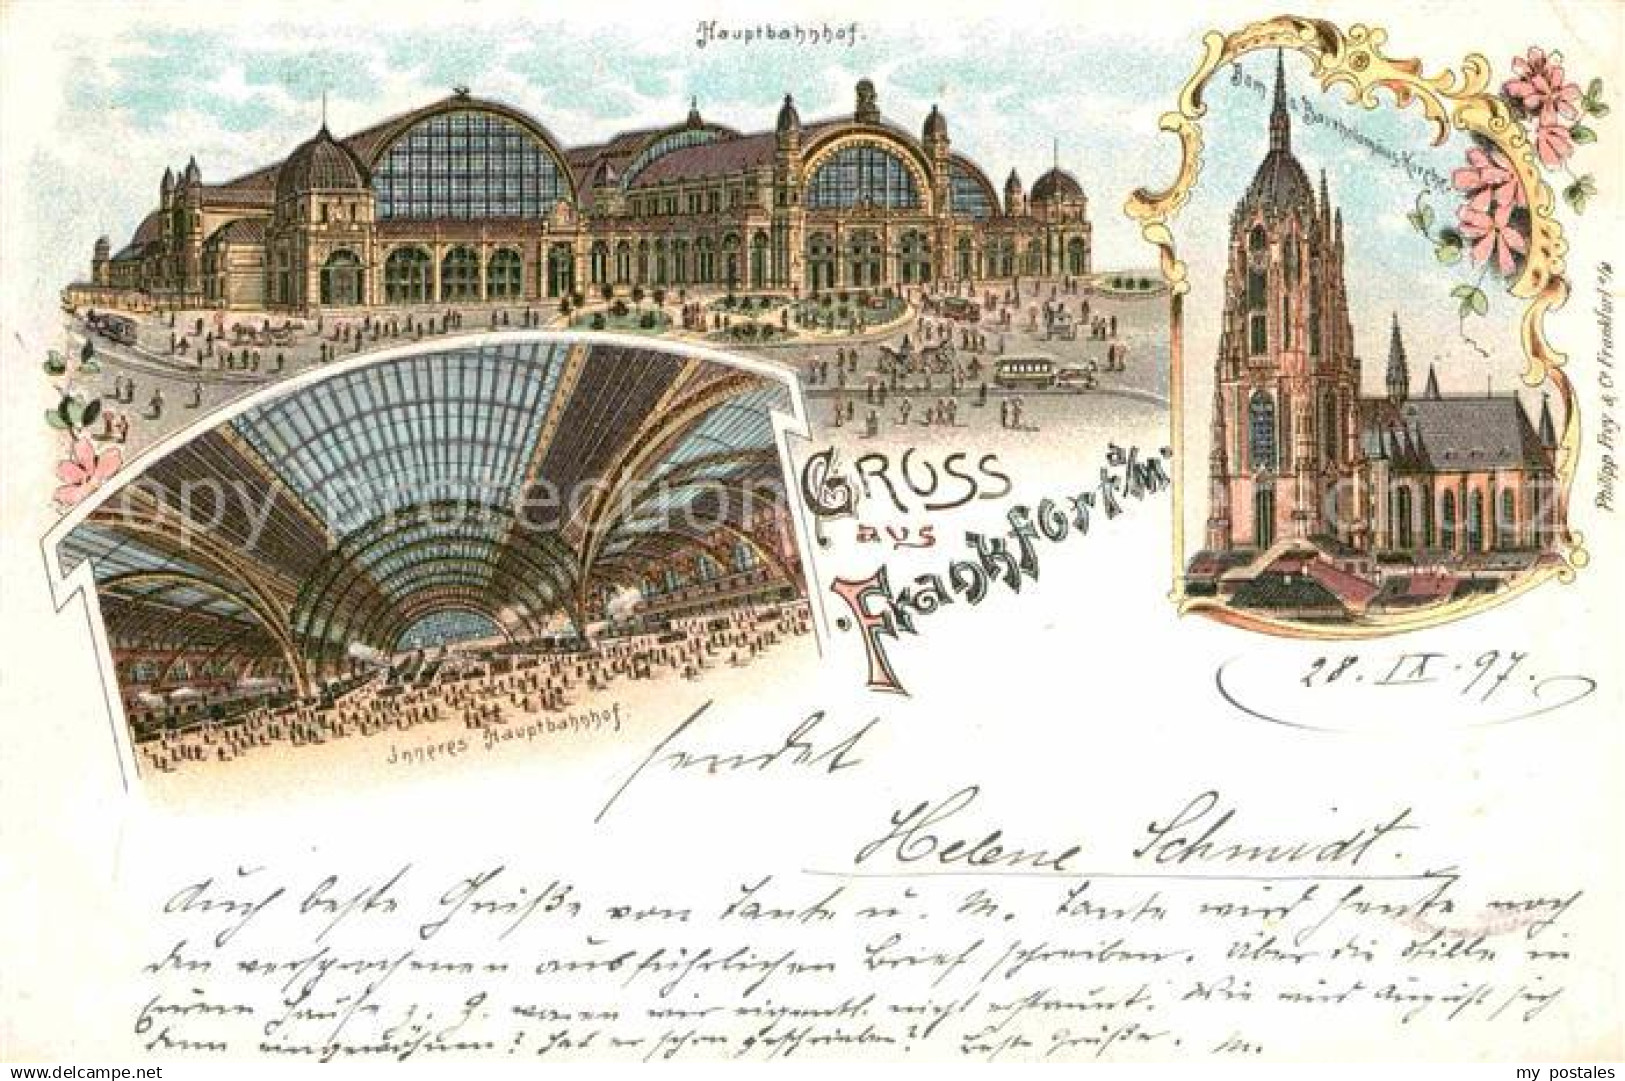 Hauptbahnhof.
Dom u. Bartholomäus-Kirche.
Philipp Frey & Co Frankfurt a/M
Gruss
aus
Frankfort a/M.
Inneres Hauptbahnhof.
28. IX. 97.
sendet
Helene Schmidt.
Auch beste Grüße von Tante u. M. Tante wird heute noch
den versprochenen ausführlichen Brief schreiben. Über die Stille in
Eurem Hause z. Z. waren wir eigentl. nicht erstaunt. Wie wird August sich
denn eingewöhnen? Hat er schon geschrieben? Beste Grüße. M.
copy protection
my postales